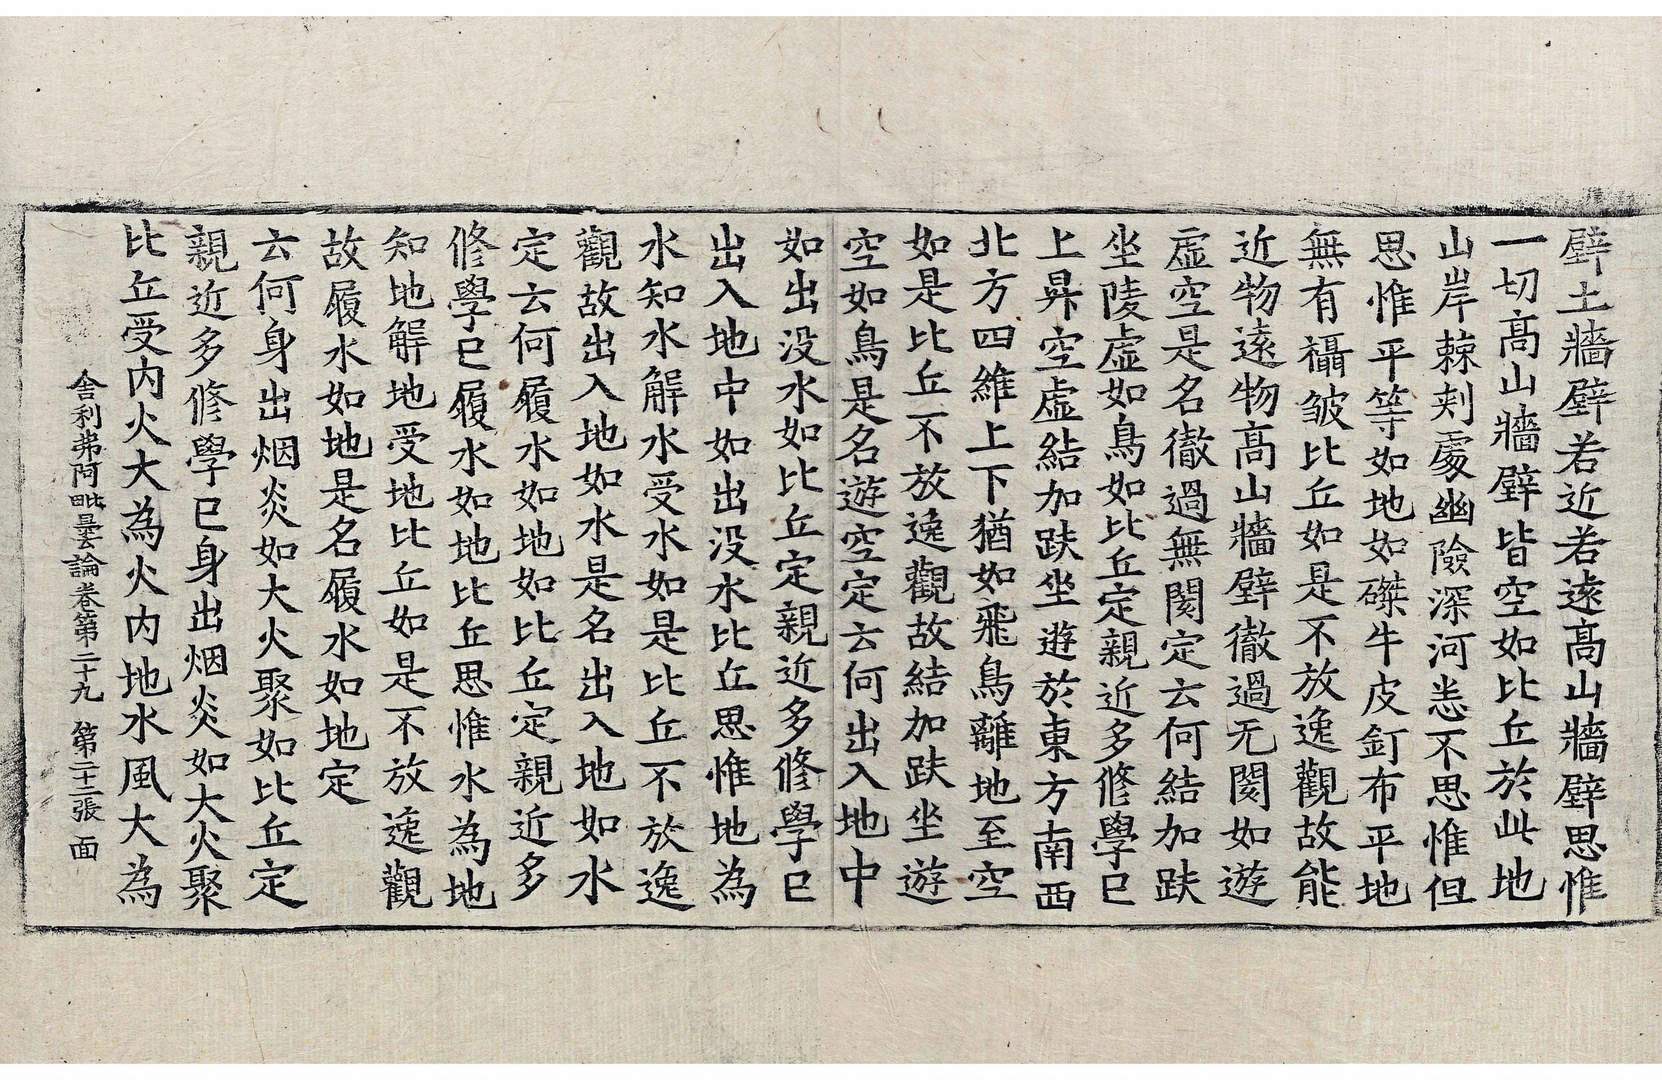 壁土牆壁若近若遠高山牆壁思惟
一切高山牆壁皆空如比丘於此地
山岸棘刺處幽險深河恙不思惟但
思惟平等如地如磔牛皮釘布平地
無有襵皺比丘如是不放逸觀故能
近物遠物高山牆壁徹過无閡如遊
虛空是名徹過無閡定云何結加趺
坐陵虛如鳥如比丘定親近多修學已
上昇空虛結加趺坐遊於東方南西
北方四維上下猶如飛鳥離地至空
如是比丘不放逸觀故結加趺坐遊
空如鳥是名遊空定云何出入地中
如出没水如比丘定親近多修學已
出入地中如出没水比丘思惟地為
水知水解水受水如是比丘不放逸
觀故出入地如水是名出入地如水
定云何履水如地如比丘定親近多
修學已履水如地比丘思惟水為地
知地解地受地比丘如是不放逸觀
故履水如地是名履水如地定
云何身出烟炎如大火聚如比丘定
親近多修學已身出烟炎如大火聚
比丘受内火大為火内地水風大為
舍利弗阿毗曇論卷第二十九 第二十二張 面